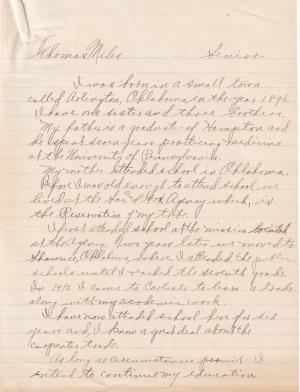 Thomas Miles Senior
I was born in a small town
called Arlington, Oklahoma in the year 1896.
I have one sister and three brothers.
My father is a graduate of Hampton and
he spent seven years practicing medicine
at the University of Pennsylvania.
My mother attended school in Oklahoma.
Before I was old enough to attend school, we
lived at the Sac & Fox Agency which, is
the Reservation of my tribe.
I first attended school at the mission located
at the Agency. Two years later we moved to
Shawnee, Oklahoma, where I attended the public
schools until I reached the seventh grade.
In 1912 I came to Carlisle to learn a trade
along with my academic work.
I have now attended school here for six
years and, I know a great deal about the
carpenter trade.
As long as circumstances permit I
intend to continue my education.